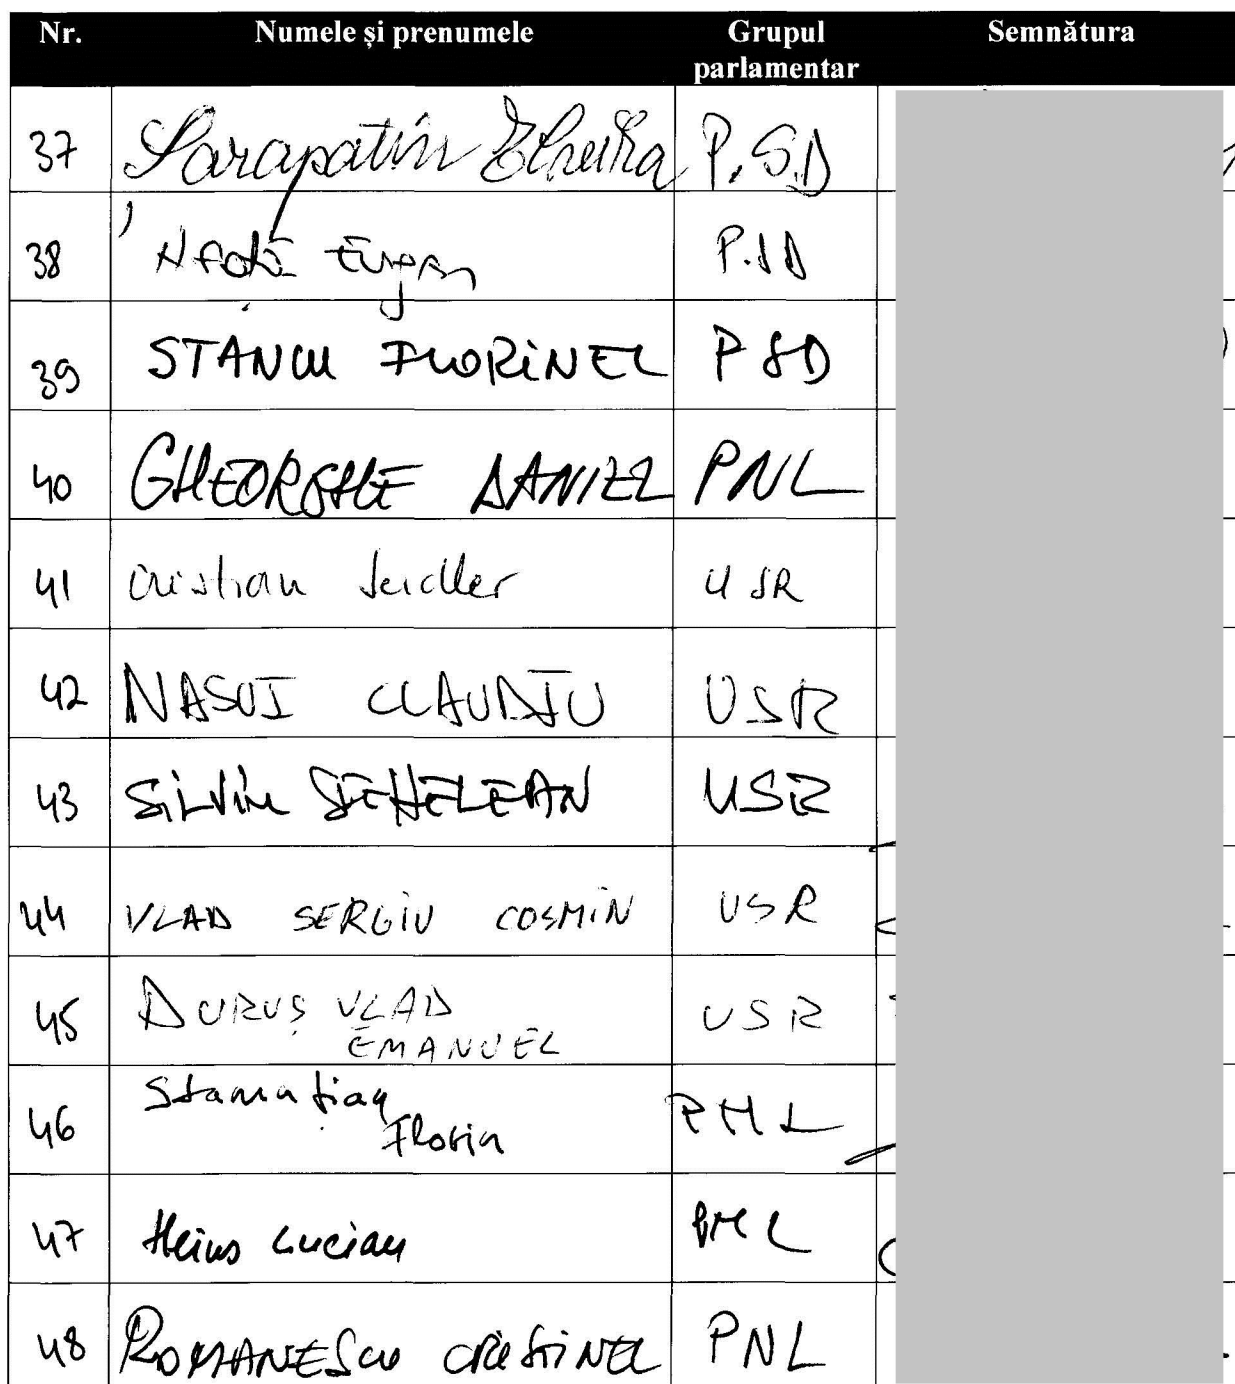 Nr. Numele și prenumele Grupul parlamentar Semnătura
37 Sarapatin Elvira P.S.D
38 Neață Eugen P.S.D
39 STANCU FLORINEL PSD
40 GHEORGHE DANIEL PNL
41 Cristian Seidler USR
42 NASUI CLAUDIU USR
43 SILVIU DEHELEAN USR
44 VLAD SERGIU COSMIN USR
45 DURUȘ VLAD EMANUEL USR
46 Stamatian Florin PNL
47 Heius Lucian PNL
48 ROMANESCU CRISTINEL PNL